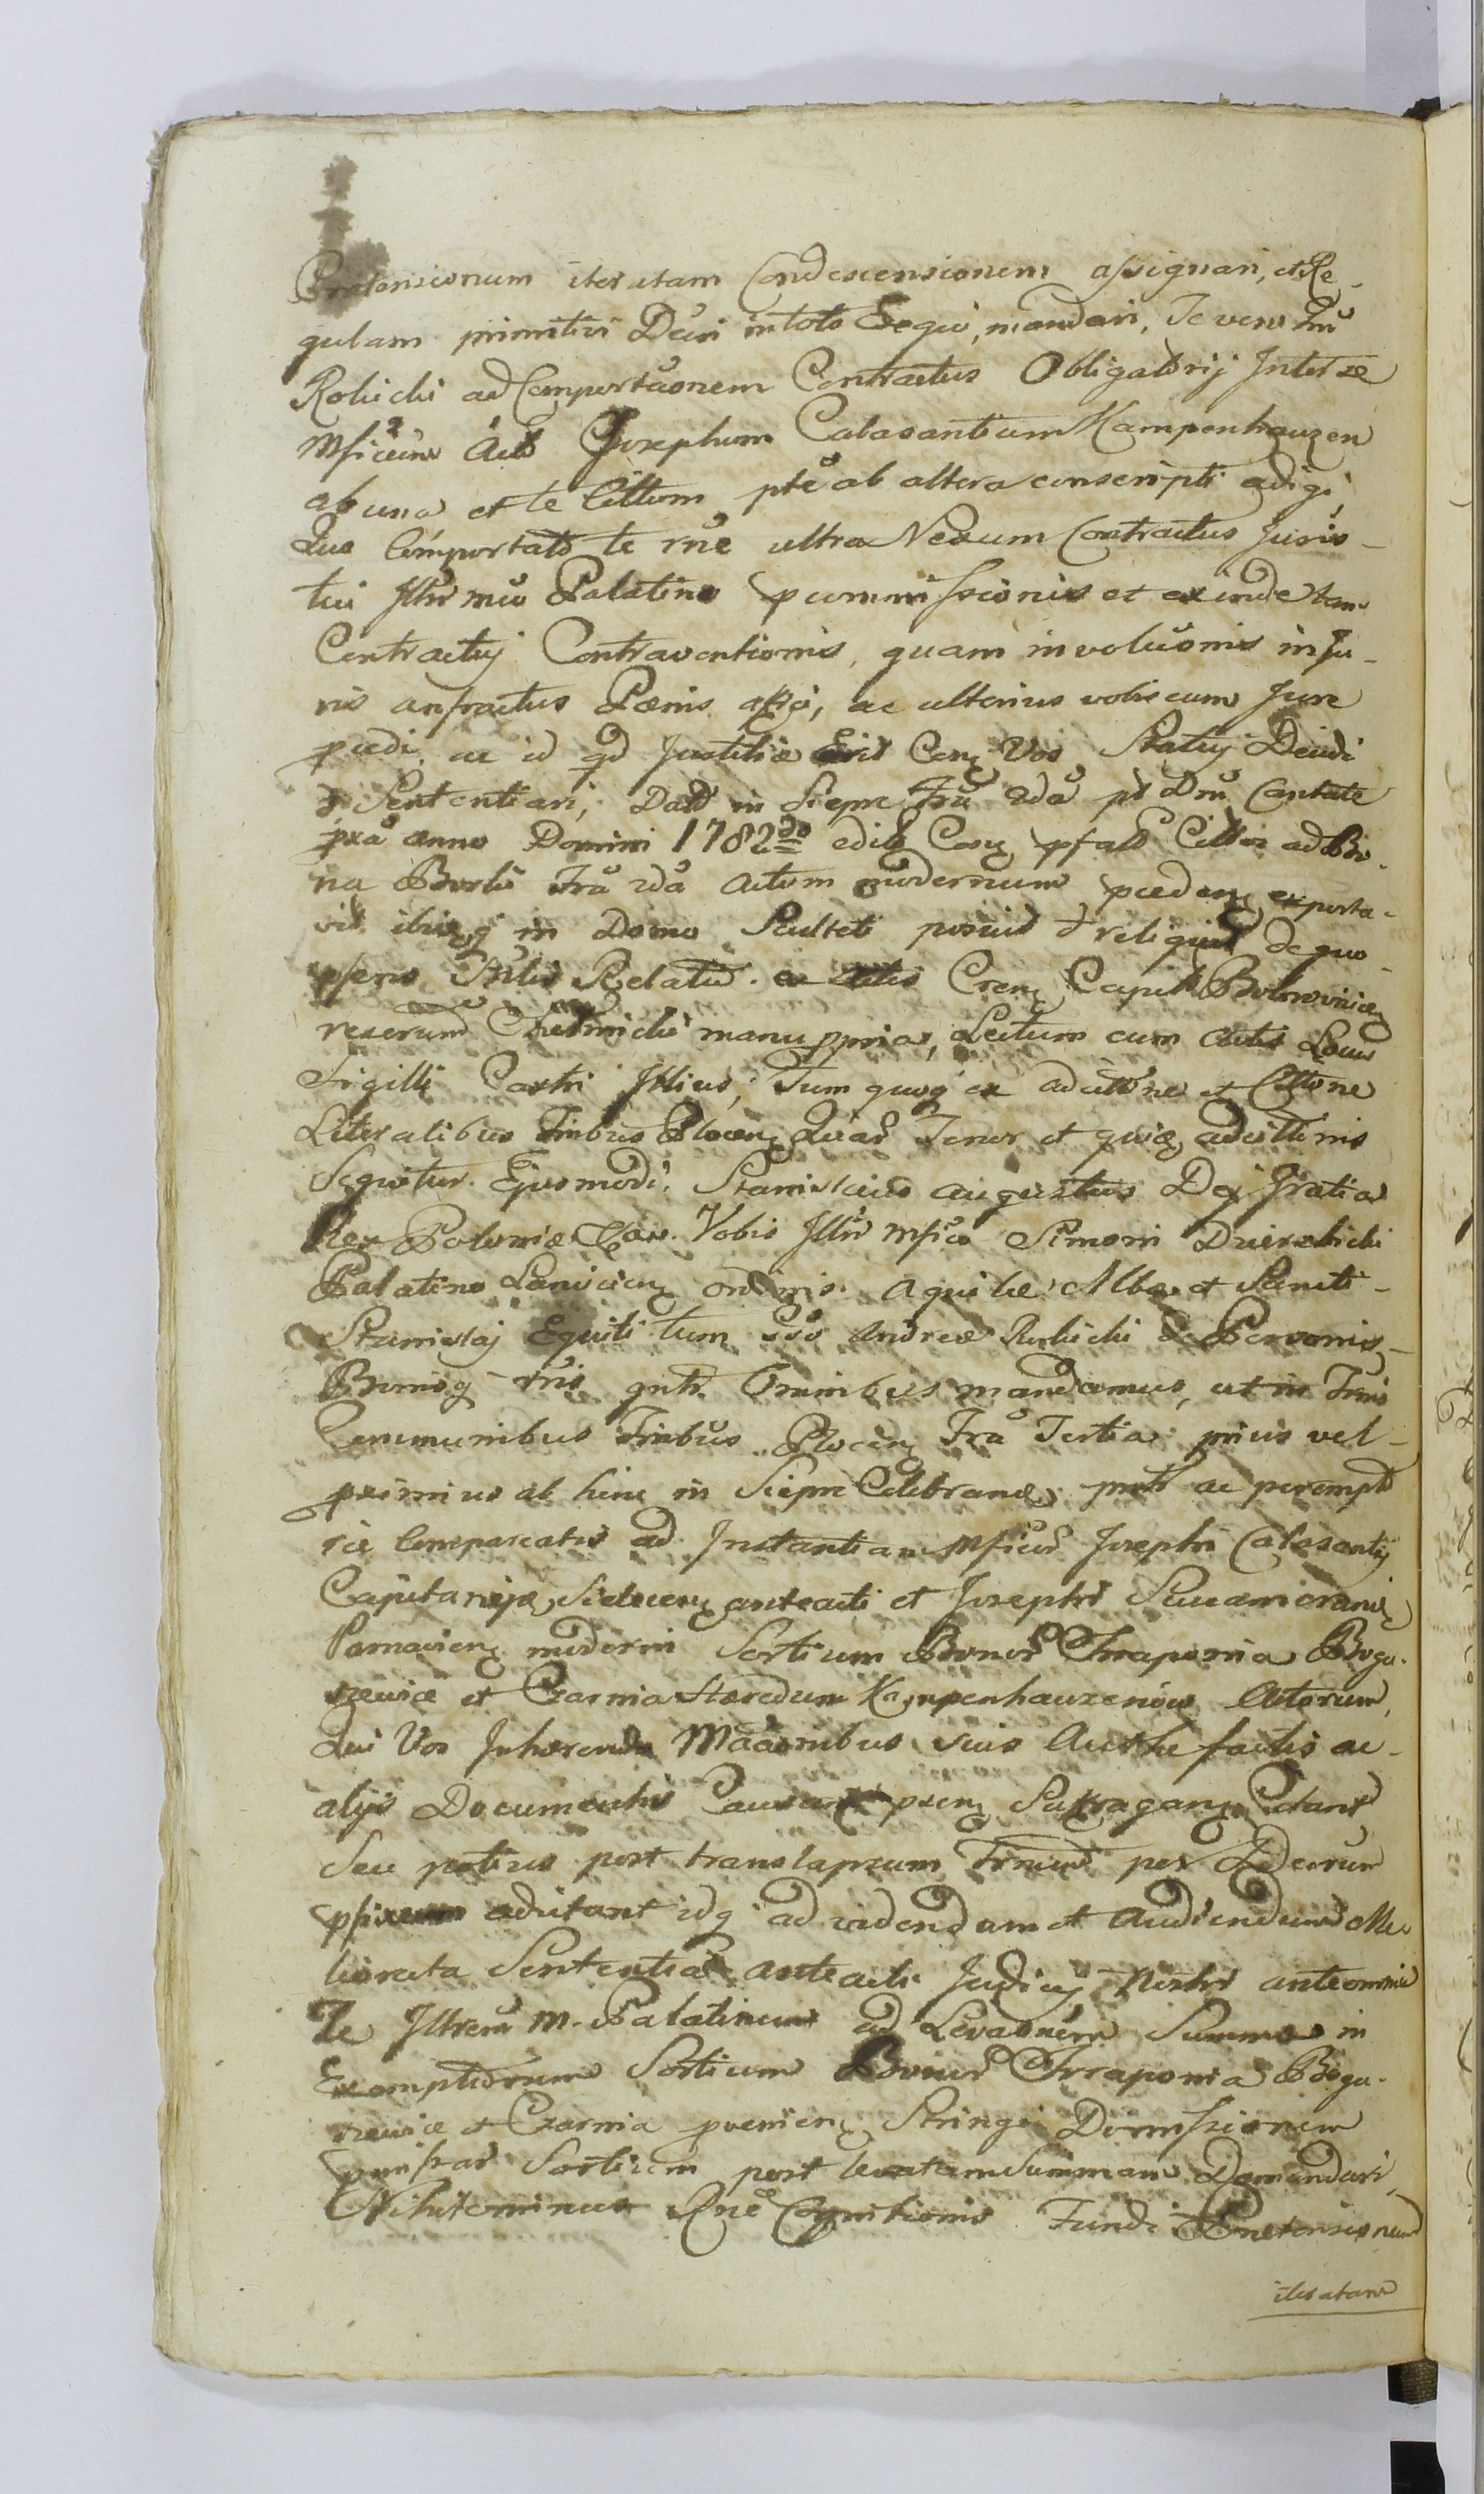 Prætensionum iteratam Condescensionem assignari, et Re-
gulam primitivi Dcri in toto Exequi, mandari, Te vero Gnū
Rolicki ad Comportāōnem Contractus Obligatorij Inter se
Mficum Act Josephum Calasantium Kampenhauzen
ab una et te Cittum pte ab altera conscripti adigi
Quo Comportato te rne ultra Nexum Contractus Juris
tui Illri mco Palatino permissionis et exinde tam
Contractuj Contraventionis, quam involuōnis in Ju-
ris anfractus Pænis affici, ac ulterius vobiscum Jure
pcedi, ac id qd Justitiæ Erit Cenq Vos Statuj Decidi
Sententiari, Datt in Sierpc Fria 2da pt Dni Cantate
pxa anno Domini 1782do edit Conq pfatt Cittõn ad Bo-
na Borki Fria 2da actum modernum pcedenq exporta-
vit ibiq in Domo Sculteti posuit et reliquit de quo
psens Stilis Relatio. ex actis Crenq Capit Bobrownicenq
rexerunt Chełmicki manu ppria, Lectum cum Actis Locus
Sigilli Castri Illius, Tum quoq ex adcittõne et Cittone
Literalibus Tribus Plocenq Quar Tenor et quidem adcittonis
Sequitur Ejusmodi. Stanislaus Augustus Dei Gratia
Rex Poloniæ &c. Vobis Illri Mfico Simoni Dzierzbicki
Palatino Lancicienq ordinis Aquilæ Albæ et Sancti
Stanislaj Equiti tum Gso Andreæ Rolicki de Personis
Bonisq rris gnlr Omnibus mandamus, ut in Trnis
Communibus Tribus Plocenq Fria Tertia prius vel
proximius ab hinc in Sierpc Celebrandis pntr ac perempt
rie Compareatis ad Instantiam Mficor Josephi Calasantij
Capitanejq Sielucenq anteacti et Josephi Succamerarij
Parnavienq moderni Sortium Bonor Chraponia Bogu-
szewice et Czarnia Hæredum Kampenhauzenow Actorum,
Qui Vos Inhærendo Mātōnibus suis Authe factis ac
alijs Documentis Causam psenq Suffraganq Citant
Seu potius post translapsum Trnum per Decrum
pfixum adcitant idq ad videndum et Audiendum Me-
liorata Sententia anteacti Judicij Nostri anteomnia
Te Illrem M. Palatinum ad Levatōnem Summæ in
Exemptorum Sortium Bonor Chraponia Bogu-
szewice et Czarnia pvenienq Stringi Dimissionem
pmissar Sortium post levatam Summam Demandari,
Nihilominus Rne Cognitionis Fundi Prætensionum
iteratam